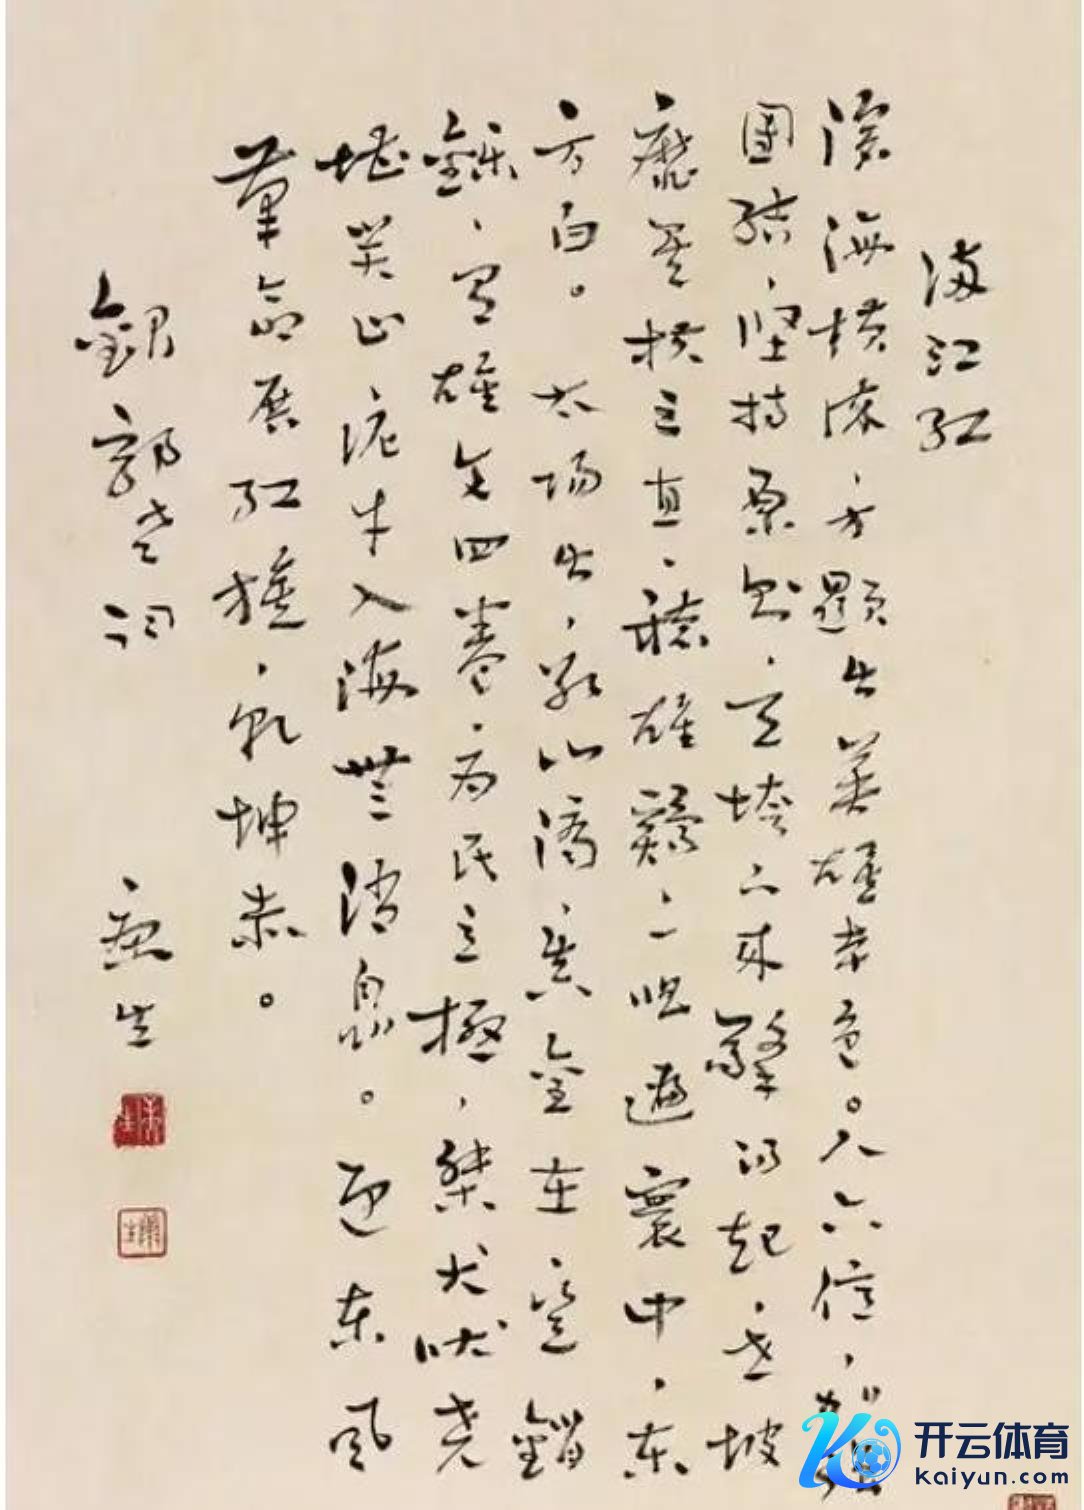 满江红
滄海横流、方顯出英雄本色。人六億、加強
團結、坚持原则、天垮下来擎得起、世披
靡矣扶之直、聽雄鷄、一唱遍寰中、东
方白。太陽出、冰山滴、真金在、豈銷
鑠、有雄文四卷、为民立極、桀犬吠尧
堪笑止泥牛入海無消息。迎东风
革命展红旗、乾坤赤。
錄郭老词
康生
开云体育
kaiyun.com